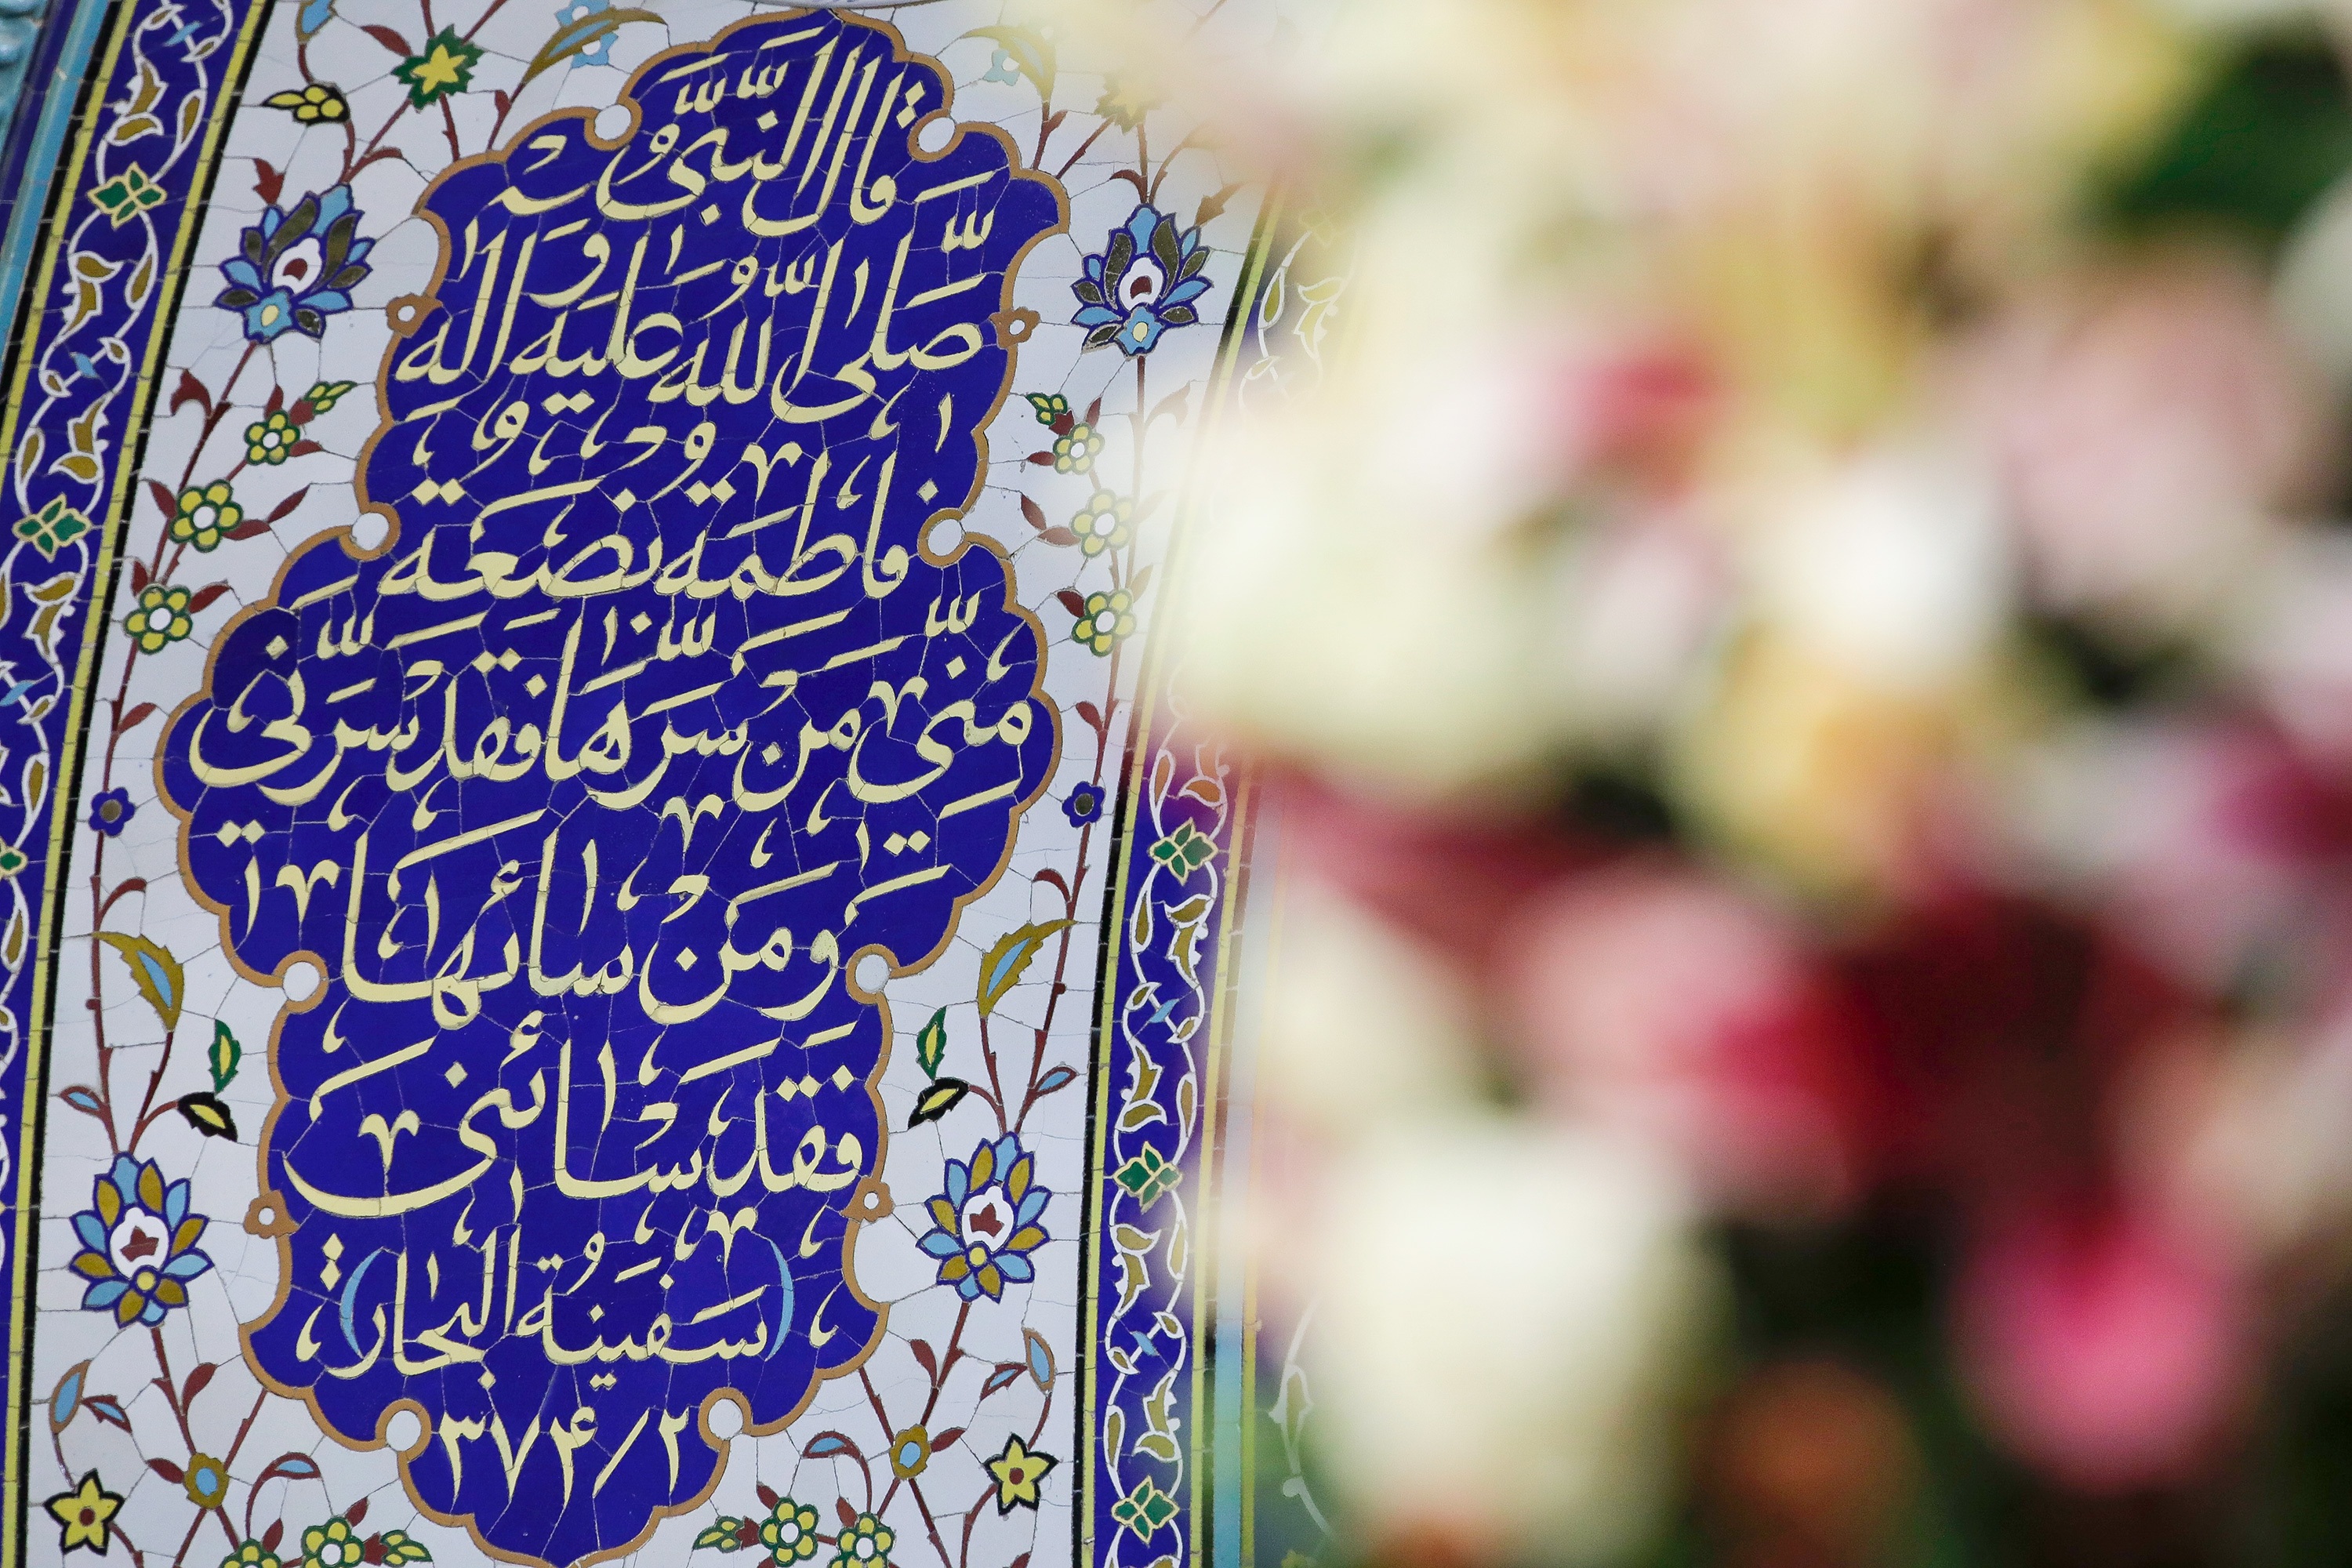 قالَ النَّبِيُّ
صَلَّى اللّٰهُ عَلَيْهِ وَآلِهِ
فاطِمَةُ بَضْعَةٌ
مِنّي مَنْ سَرَّها فَقَدْ سَرَّني
وَمَنْ سائَها
فَقَدْ سائَني
(سَفينَةُ الْبِحار)
۳۷۴/۲